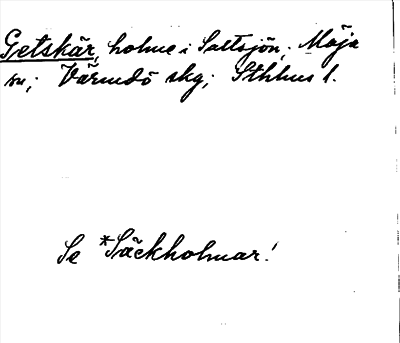 Getskär, holme i Saltsjön; Möja
sn; Värmdö skg; Sthlms l.
Se *Säckholmar!